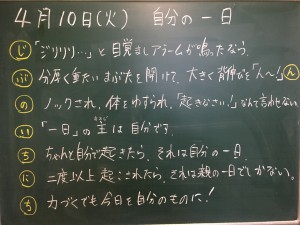 4月10日(火) 自分の一日
じ 「ジリリリ…」と目覚ましアラームが鳴ったなら、
ぶ 分厚く重たいまぶたを開けて、大きく背伸びを「ん〜!」 ん
の ノックされ、体をゆすられ、「起きなさい!」なんて言わせない
い 「一日」の主は自分です。
ち ちゃんと自分で起きたら、それは自分の一日。
に 二度以上起こされたら、それは親の一日でしかない。
ち 力づくでも今日を自分のものに!